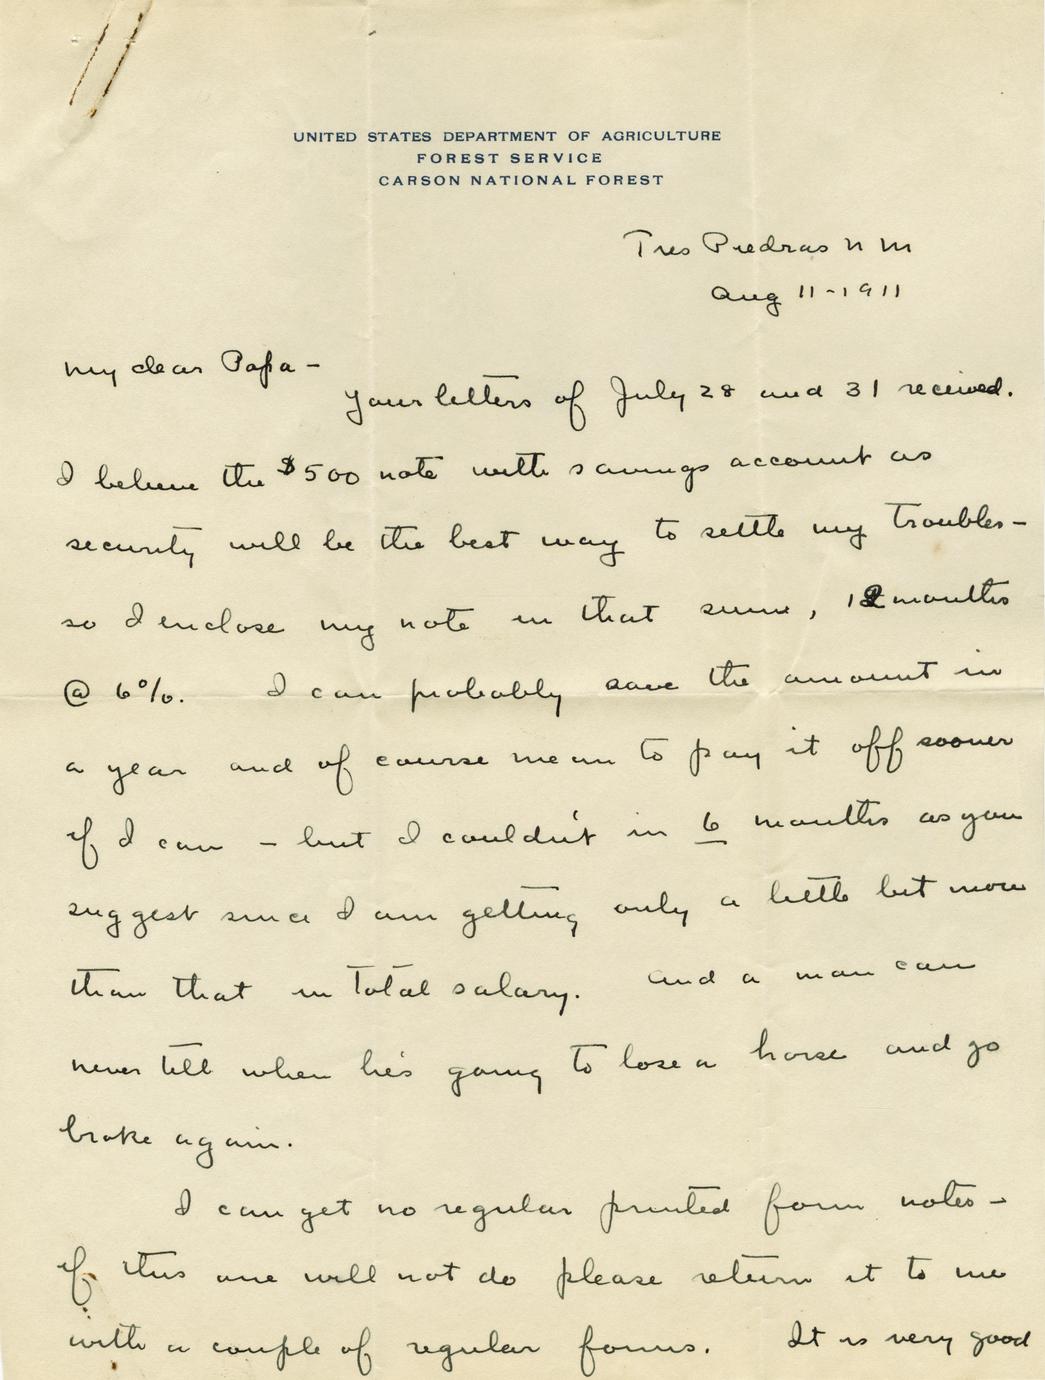 UNITED STATES DEPARTMENT OF AGRICULTURE
FOREST SERVICE
CARSON NATIONAL FOREST
Tres Piedras N M
Aug 11-1911
My dear Papa -
Your letters of July 28 and 31 received.
I believe the $500 note with savings account as
security will be the best way to settle my troubles -
so I enclose my note in that sum, 12 months
@ 6%. I can probably save the amount in
a year and of course mean to pay it off sooner
if I can - but I couldn't in 6 months as you
suggest since I am getting only a little bit more
than that in total salary. And a man can
never tell when he's going to lose a horse and go
broke again.
I can get no regular printed form notes -
if this one will not do please return it to me
with a couple of regular forms. It is very good